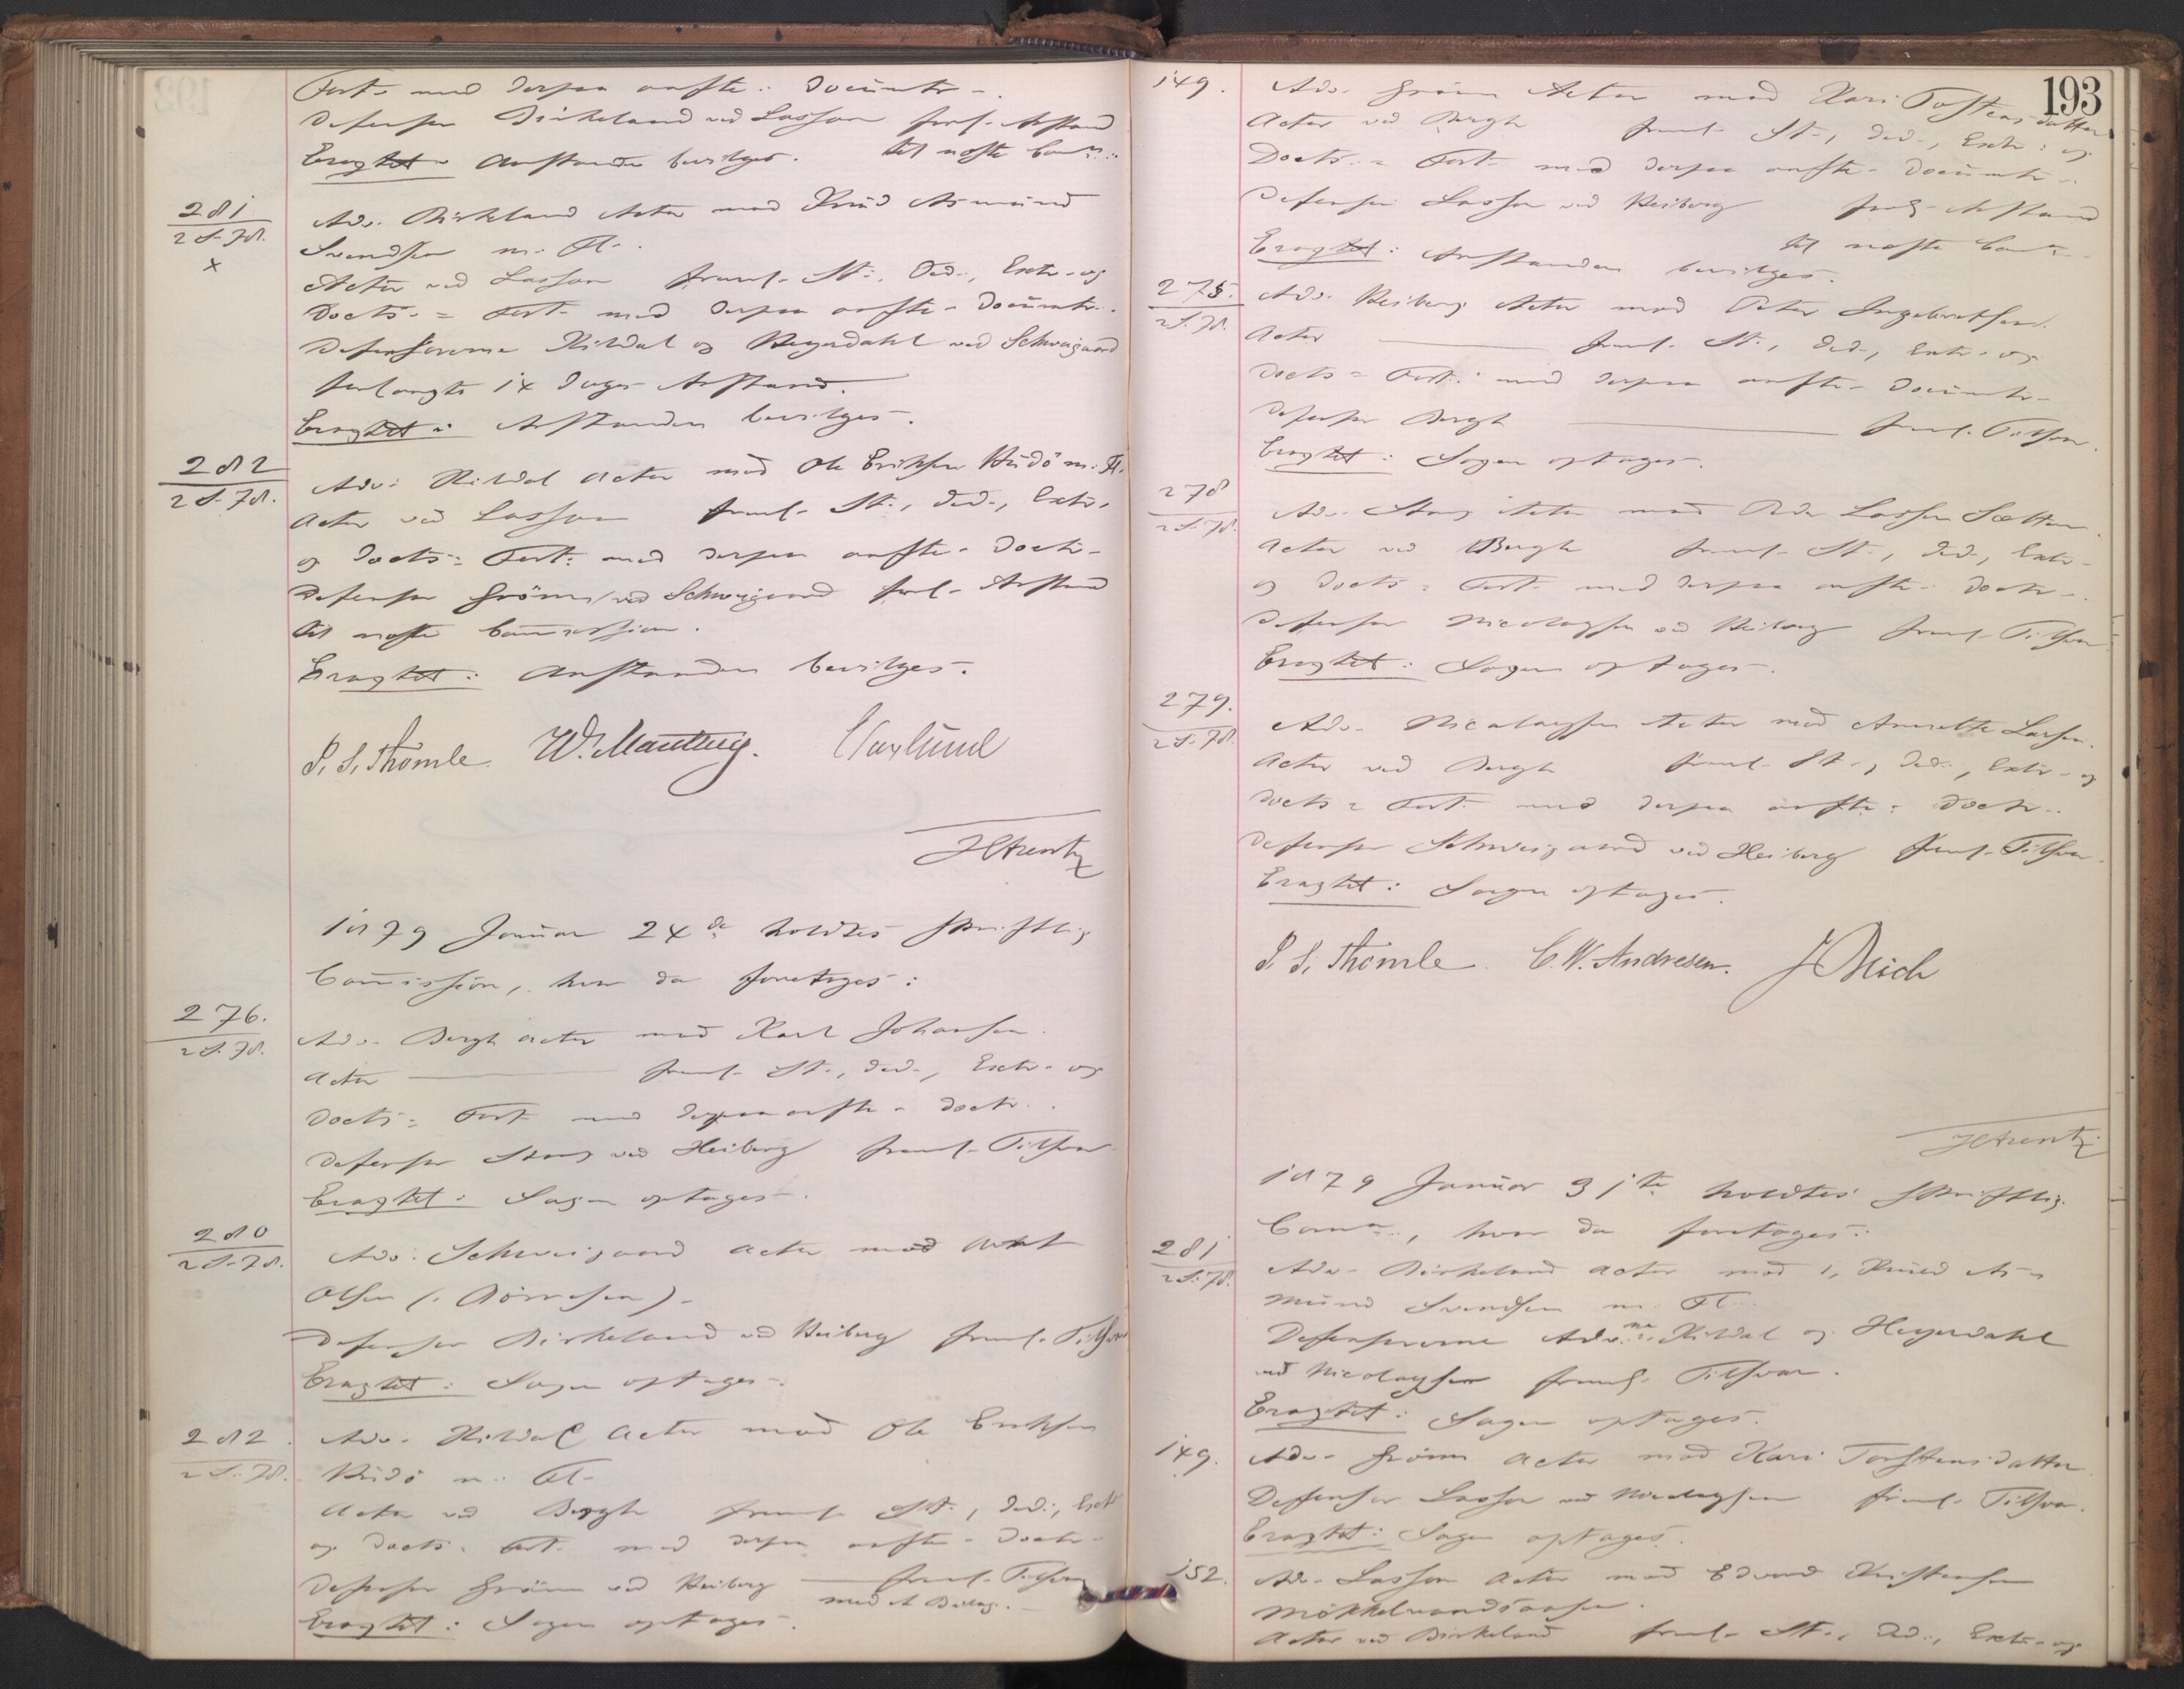 Fort. med derpaa anførte Documenter.
Defensor Birkeland ved Lasson forl. Anstand
Eragtet: Anstanden bevilges. til næste Comn.
281
2 S. 78.
x
Adv. Birkeland Actor mod Knud Asmund
Svendsen m. Fl.
Actor ved Lasson freml. St., Ded., Extr. og
Docts. Fort. med derpaa anførte Documtr.
Defensorerne Kildal og Heyerdahl ved Schweigaard
forlangte 14 Dages Anstand.
Eragtet: Anstanden bevilges.
282
2 S. 78.
Adv. Kildal Actor mod Ole Eriksen Hudö m. Fl.
Actor ved Lasson freml. St., Ded., Extr.
og Docts. Fort. med derpaa anførte Doctr.
Defensor Grönn ved Schweigaard forl. Anstand
til næste Commission.
Eragtet: Anstanden bevilges.
P. S. Thomle. W. Manthey.
1879 Januar 24de holdtes skriftlig
Commission, hvor da foretoges:
276.
2 S. 78.
Adv. Bergh Actor mod Karl Johansen.
Actor freml. St., Ded., Extr. og
Docts. Fort. med derpaa anførte Doctr.
Defensor Stang ved Heiberg freml. Tilsvar
Eragtet: Sagen optages.
280
2 S. 78.
Adv. Schweigaard Actor mod
Olsen (: Börresen).
Defensor Birkeland ved Heiberg freml. Tilsvar
Eragtet: Sagen optages.
282.
2 S. 78.
Adv. Kildal Actor mod Ole Eriksen
Hudö m. Fl.
Actor ved Bergh freml. St., Ded., Extr.
og Docts. Fort. med derpaa anførte Doctr.
Defensor Grönn ved Heiberg freml. Tilsvar
med Bilag.
Eragtet: Sagen optages.
193
149.
Adv. Grönn Actor mod Kari Torstensdatter
Actor ved Bergh freml. St., Ded., Extr. og
Docts. Fort. med derpaa anførte Documtr.
Defensor Lasson ved Heiberg forl. Anstand
til næste Comn.
Eragtet: Anstanden bevilges.
275.
2 S. 78.
Adv. Heiberg Actor mod Peter Ingebretsen.
Actor freml. St., Ded., Extr. og
Docts. Fort. med derpaa anførte Documtr.
Defensor Bergh freml. Tilsvar.
Eragtet: Sagen optages.
278
2 S. 78.
Adv. Stang Actor mod Larsen Sætter
Actor ved Bergh freml. St., Ded., Extr.
og Docts. Fort. med derpaa anførte Doctr.
Defensor Nicolaysen ved Heiberg freml. Tilsvar.
Eragtet: Sagen optages.
279.
2 S. 78.
Adv. Nicolaysen Actor mod Annette Larsen.
Actor ved Bergh freml. St., Ded., Extr. og
Docts. Fort. med derpaa anførte Doctr.
Defensor Schweigaard ved Heiberg freml. Tilsvar.
Eragtet: Sagen optages.
P. S. Thomle. C. W. Andresen.
1879 Januar 31te holdtes skriftlig
Comn., hvor da foretoges:
281
2 S. 78.
Adv. Birkeland Actor mod 1, Knud As-
mund Svendsen m. Fl.
Defensorerne Adv.ne Kildal og Heyerdahl
ved Nicolaysen freml. Tilsvar.
Eragtet: Sagen optages.
149.
Adv. Grönn Actor mod Kari Torstensdatter.
Defensor Lasson ved Nicolaysen freml. Tilsvar.
Eragtet: Sagen optages.
152.
Adv. Lasson Actor mod Edvard Christensen
Actor ved Birkeland freml. St., Ded., Extr. og